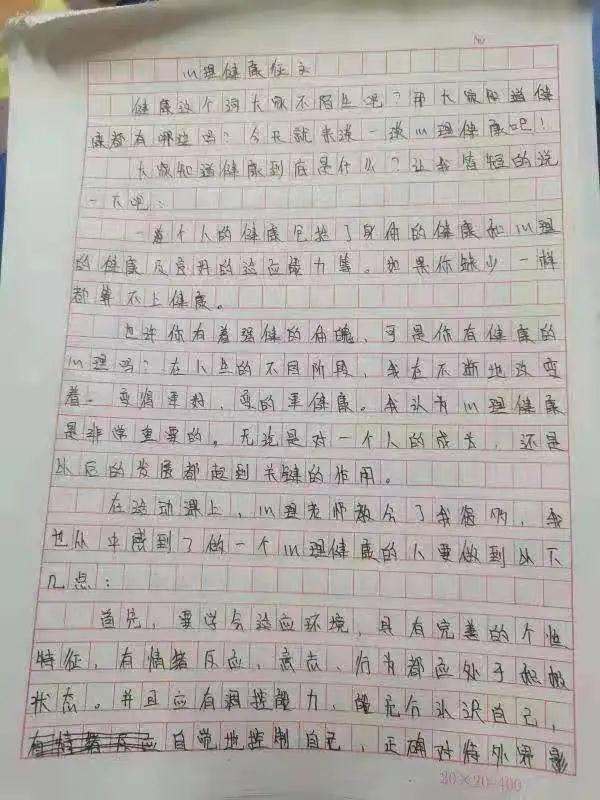 No
心理健康征文
健康这个词大家不陌生吧？那大家知道健
康都有哪些吗？今天就来谈一谈心理健康吧！
大家知道健康到底是什么？让我简短的说
一下吧：
一个人的健康包括了身体的健康和心理
的健康及良好的适应能力等。如果你缺少一样
都算不上健康。
也许你有着强健的体魄，可是你有健康的
心理吗？在人生的不同阶段，我在不断地改变
着。变得更好，变的更健康。我认为心理健康
是非常重要的。无论是对一个人的成长，还是
以后的发展都起到关键的作用。
在活动课上，心理老师教会了我很多，我
也从中感到了做一个心理健康的人要做到以下
几点：
首先，要学会适应环境，具有完善的个性
特征，有情绪反应，意志、行为都应处于积极
状态。并且应有调控能力，能充分认识自己，
自觉地控制自己，正确对待外界影
20×20=400